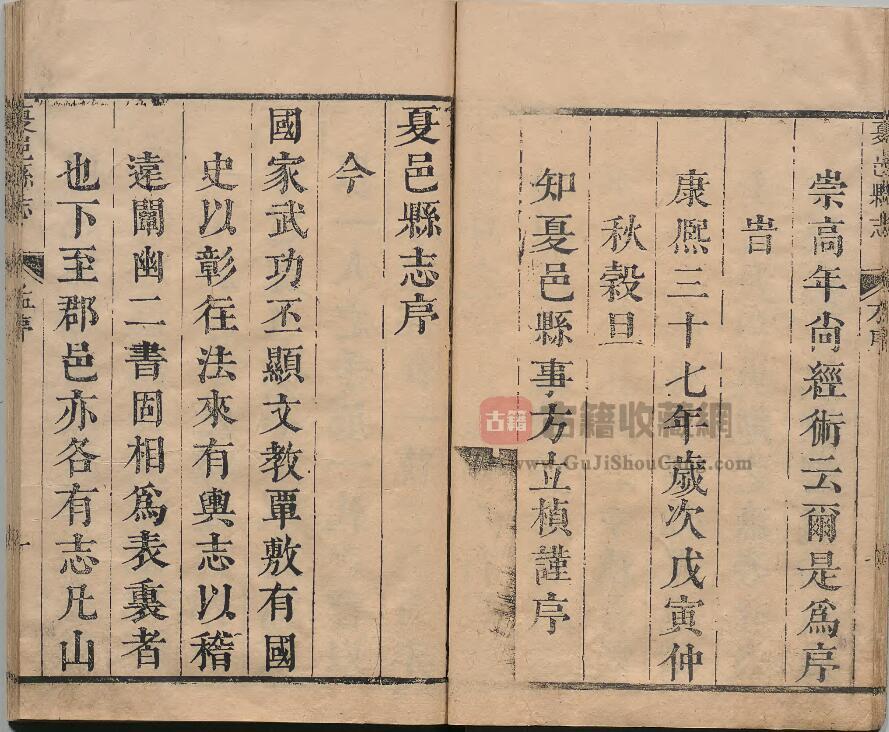 夏邑縣志
崇高年尙經術云爾是爲序
旹
康熈三十七年歲次戊寅仲
秋穀旦
知夏邑縣事方立楨謹序
夏邑縣志序
今
國家武功丕顯文教覃敷有國
史以彰往法來有輿志以稽
遠闡幽二書固相爲表裏者
也下至郡邑亦各有志凡山
夏邑縣志
序
一
古籍
古籍收藏網
www.GuJiShouCang.com